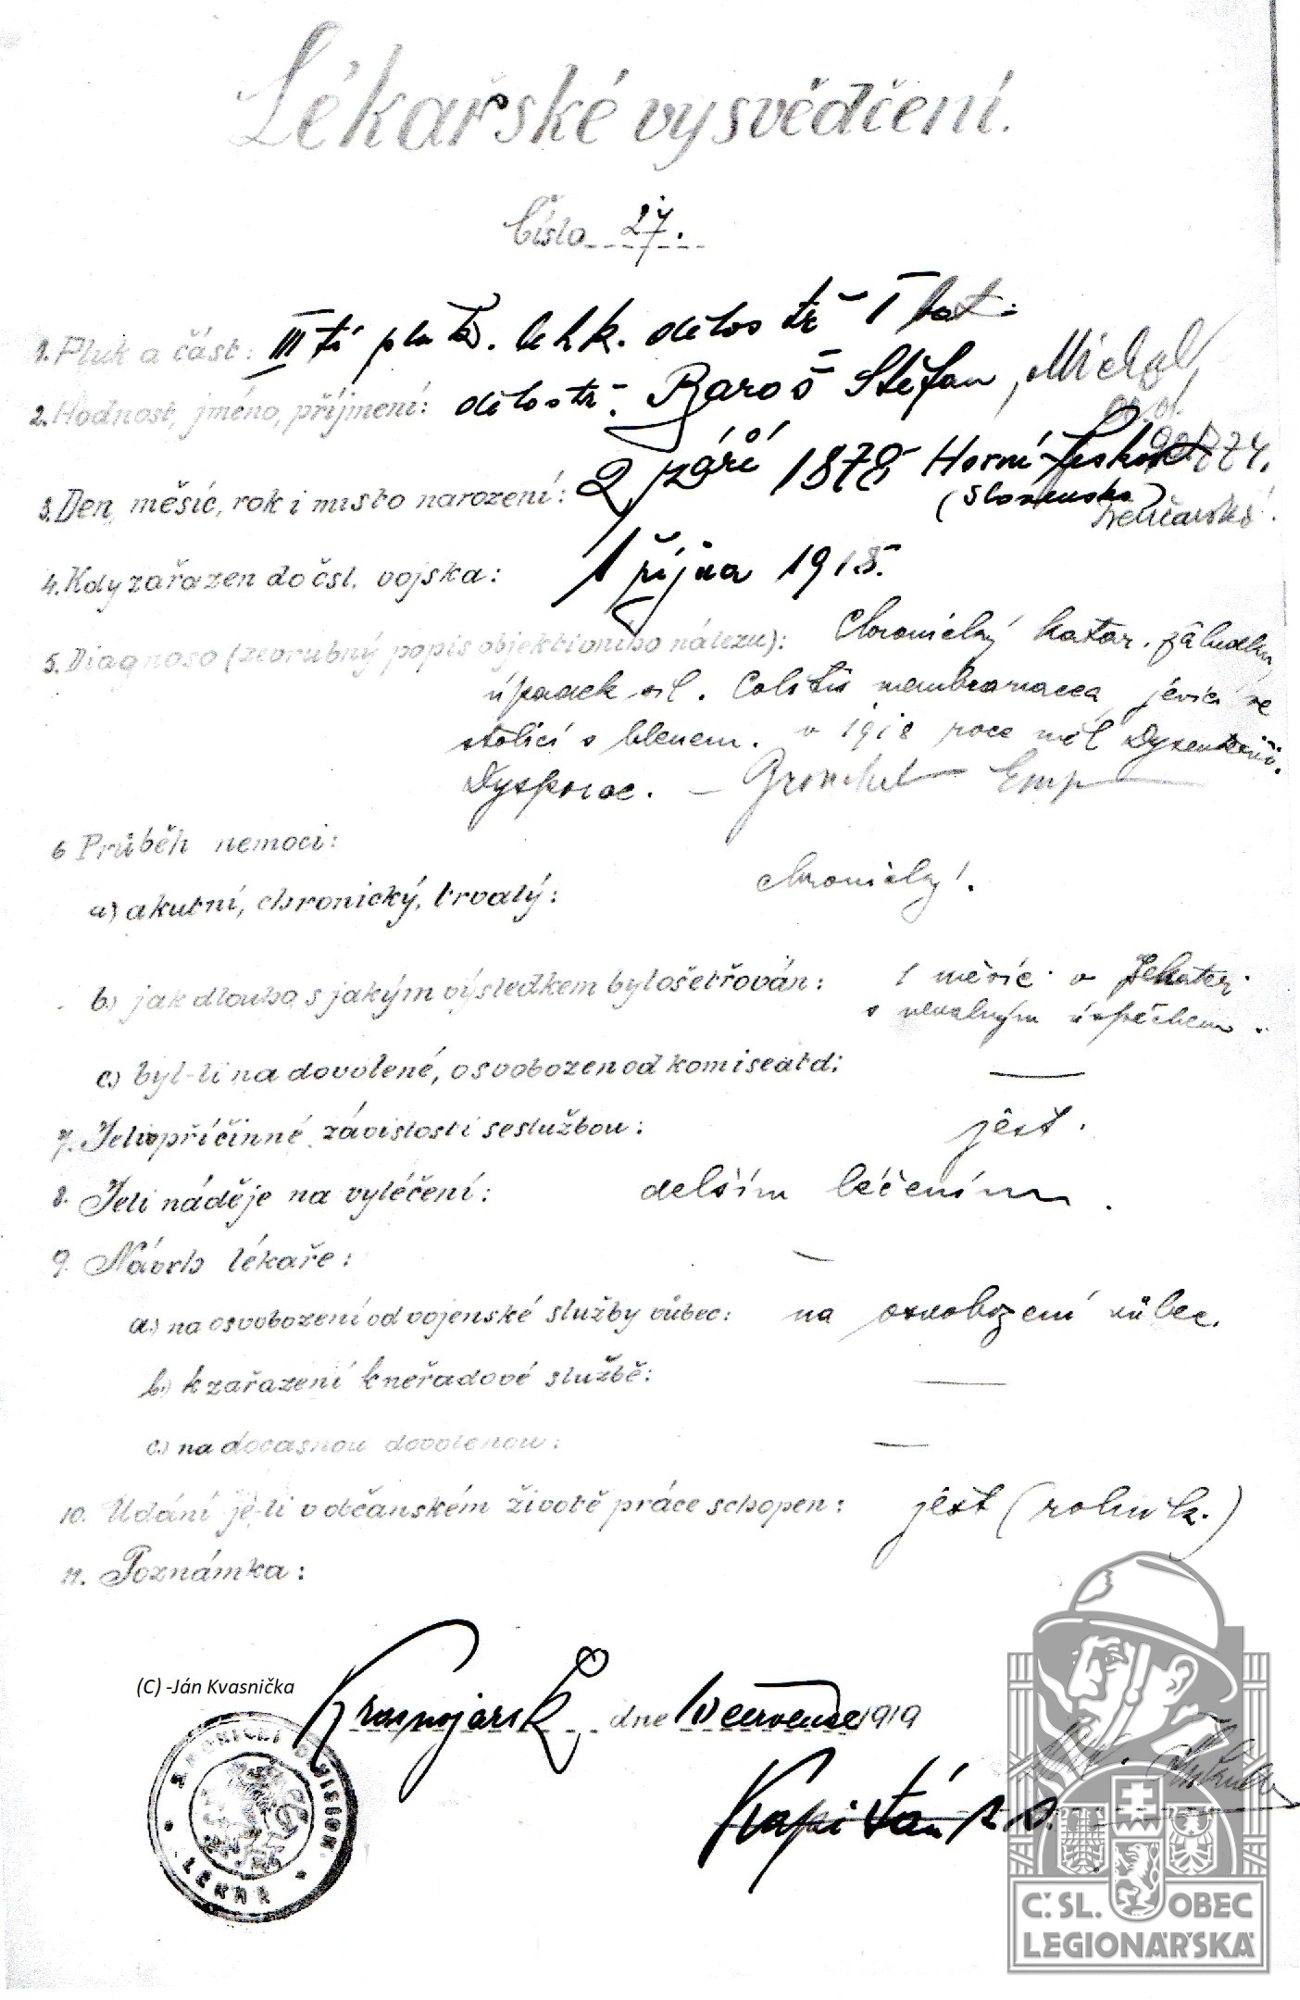 Lékařské vysvědčení.
Číslo 27.
1. Pluk a část: III tí pluk. lehk. dělostř I bat.
2. Hodnost, jméno, příjmení: dělostř. Baroš Štefan, Michal
3. Den, měsíc, rok i místo narození: 2 září 1878 Horní
(Slovensko) Trenčanská
4. Kdy zařazen do čsl. vojska: 1 října 1918.
5. Diagnosa (zevrubný popis objektivního nálezu): Chronický katar. žaludku,
úpadek sil. Colitis membranacea, jevící se
stolicí s hlenem. v 1918 roce měl Dysenterii.
Dyspnoe. —
6 Průběh nemoci:
a) akutní, chronický, trvalý: chronický.
b) jak dlouho, s jakým výsledkem byl ošetřován: 1 měsíc v Jekater.
s nevalným úspěchem.
c) byl-li na dovolené, osvobozen od komise atd: —
7. Je li v příčinné závislosti se službou: jest.
8. Jeli náděje na vyléčení: delším léčením.
9. Návrh lékaře: —
a) na osvobození od vojenské služby vůbec: na osvobození vůbec.
b) k zařazení k neřadové službě: —
c) na docasnou dovolenou: —
10. Udání je-li v občanském životě práce schopen: jest (rolník.)
11. Poznámka:
(C) -Ján Kvasnička
Krasnojarsk dne 10 července 1919
Kapitán
LÉKAŘ
Č. SL. OBEC
LEGIONÁŘSKÁ